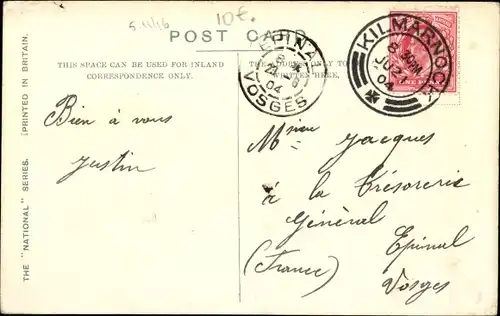 5.11/16
10 €.
POST CARD
THIS SPACE CAN BE USED FOR INLAND
CORRESPONDENCE ONLY.
THE ADDRESS ONLY TO
WRITTEN HERE.
EPINAL
04
VOSGES
KILMARNOCK
JU 27
04
THE "NATIONAL" SERIES. (PRINTED IN BRITAIN.
Bien à vous
Justin
Msieur Jacques
à la Trésorerie
Général
Epinal
(France)
Vosges